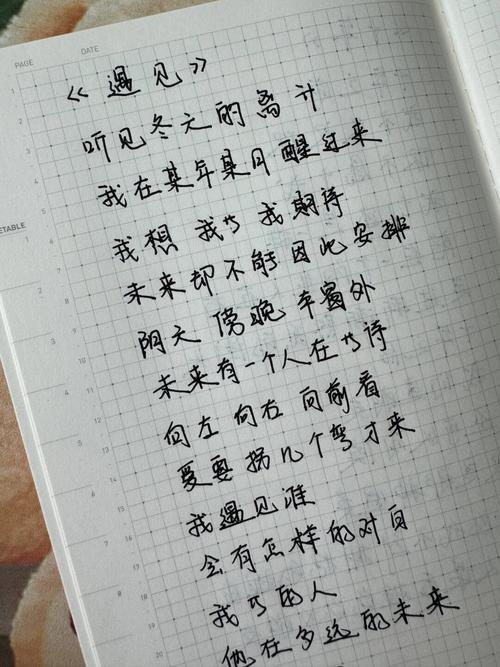 PAGE DATE
《遇见》
听见冬天的离开
我在某年某月 醒过来
我想 我等 我期待
未来却不能因此安排
ETABLE
阴天 傍晚 车窗外
未来有一个人在等待
向左 向右 向前看
爱要拐几个弯才来
我遇见谁
会有怎样的对白
我等的人
他在多远的未来